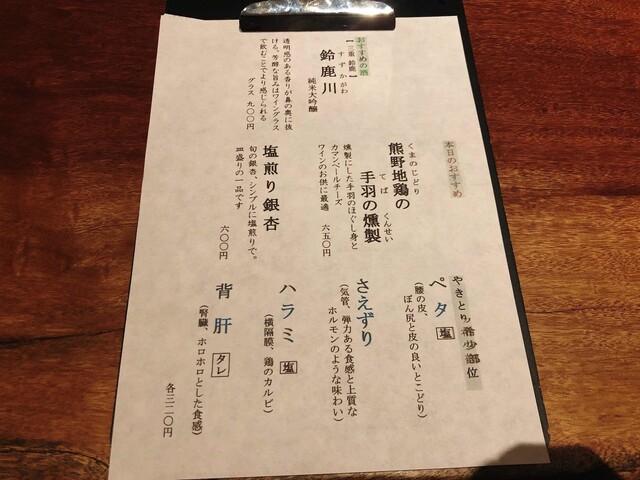 おすすめの酒
【三重 鈴鹿】
すずかがわ
鈴鹿川
純米大吟醸
透明感のある香りが鼻の奥に抜
ける。芳醇な旨みはワイングラス
で飲むことでより感じられる
グラス 九〇〇円
本日のおすすめ
くまのじどり
熊野地鶏の
てば くんせい
手羽の燻製
燻製にした手羽のほぐし身と
カマンベールチーズ
ワインのお供に最適
六五〇円
塩煎り銀杏
旬の銀杏・シンプルに塩煎りで。
皿盛りの一品です
六〇〇円
やきとり希少部位
ペタ 塩
(腰の皮、
ぼん尻と皮の良いとこどり)
さえずり
(気管、弾力ある食感と上質な
ホルモンのような味わい)
ハラミ 塩
(横隔膜、鶏のカルビ)
背肝 タレ
(腎臓、ホロホロとした食感)
各三二〇円